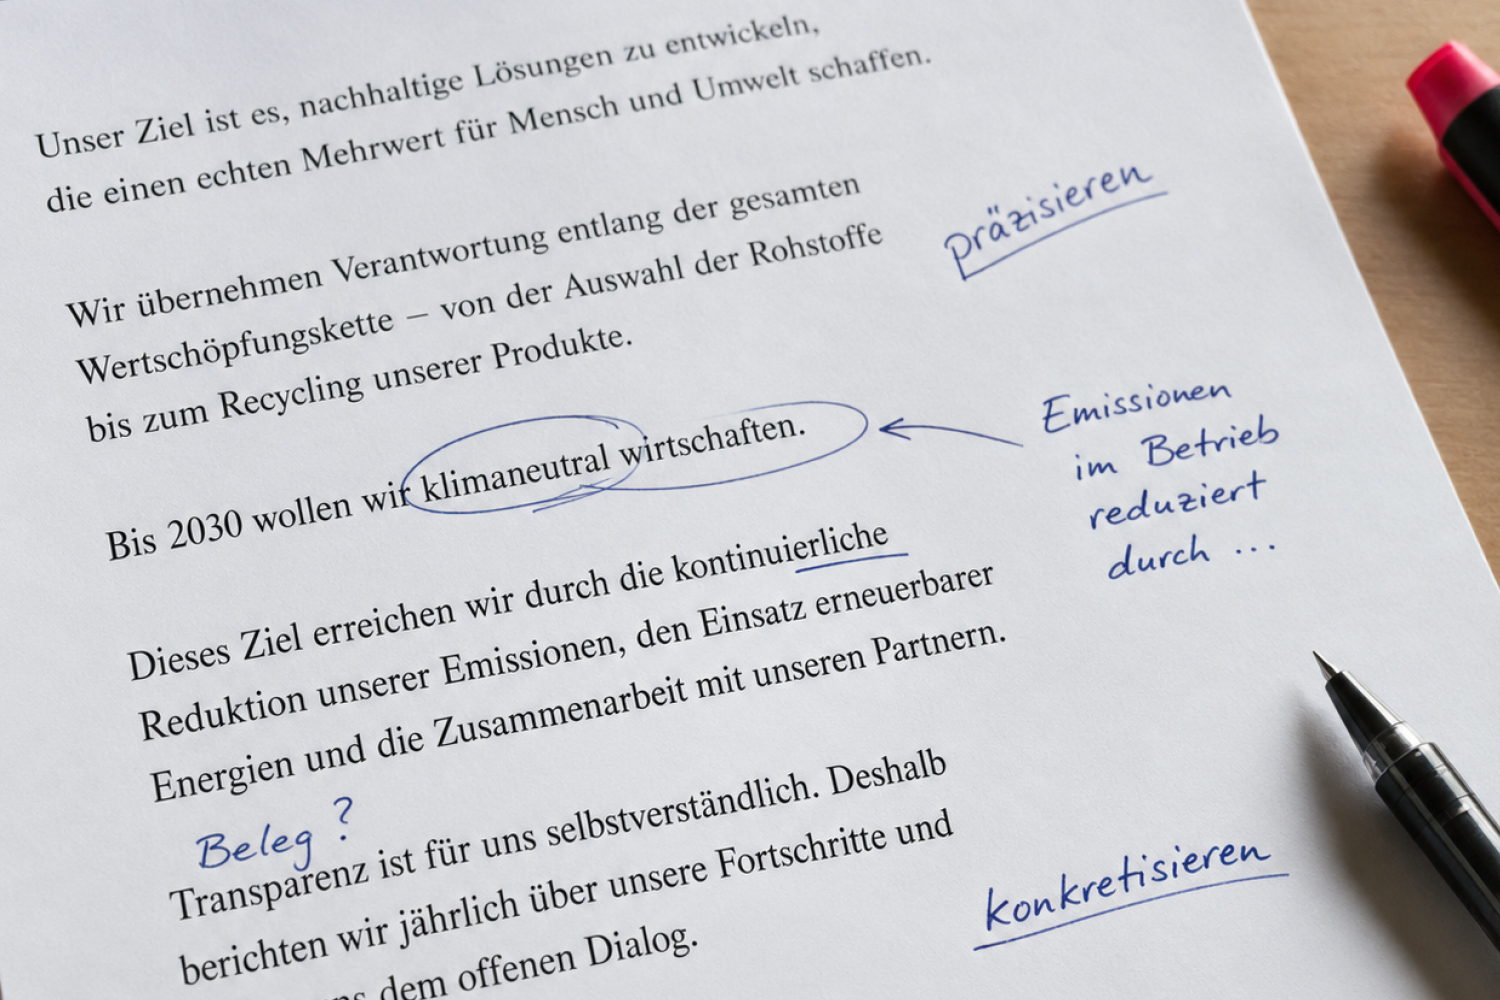 Unser Ziel ist es, nachhaltige Lösungen zu entwickeln,
die einen echten Mehrwert für Mensch und Umwelt schaffen.
präzisieren
Wir übernehmen Verantwortung entlang der gesamten
Wertschöpfungskette – von der Auswahl der Rohstoffe
bis zum Recycling unserer Produkte.
Bis 2030 wollen wir klimaneutral wirtschaften.
Emissionen
im Betrieb
reduziert
durch ...
Dieses Ziel erreichen wir durch die kontinuierliche
Reduktion unserer Emissionen, den Einsatz erneuerbarer
Energien und die Zusammenarbeit mit unseren Partnern.
Beleg?
Transparenz ist für uns selbstverständlich. Deshalb
berichten wir jährlich über unsere Fortschritte und
dem offenen Dialog.
konkretisieren